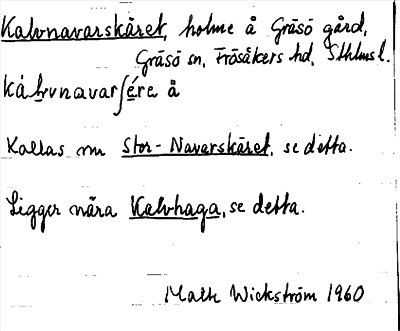 Kalvnavarskäret, holme å Gräsö gård,
Gräsö sn, Frösåkers hd, Sthlms l.
å
Kallas nu Stor-Navarskäret, se detta.
Ligger nära Kalvhaga, se detta.
Malte Wickström 1960